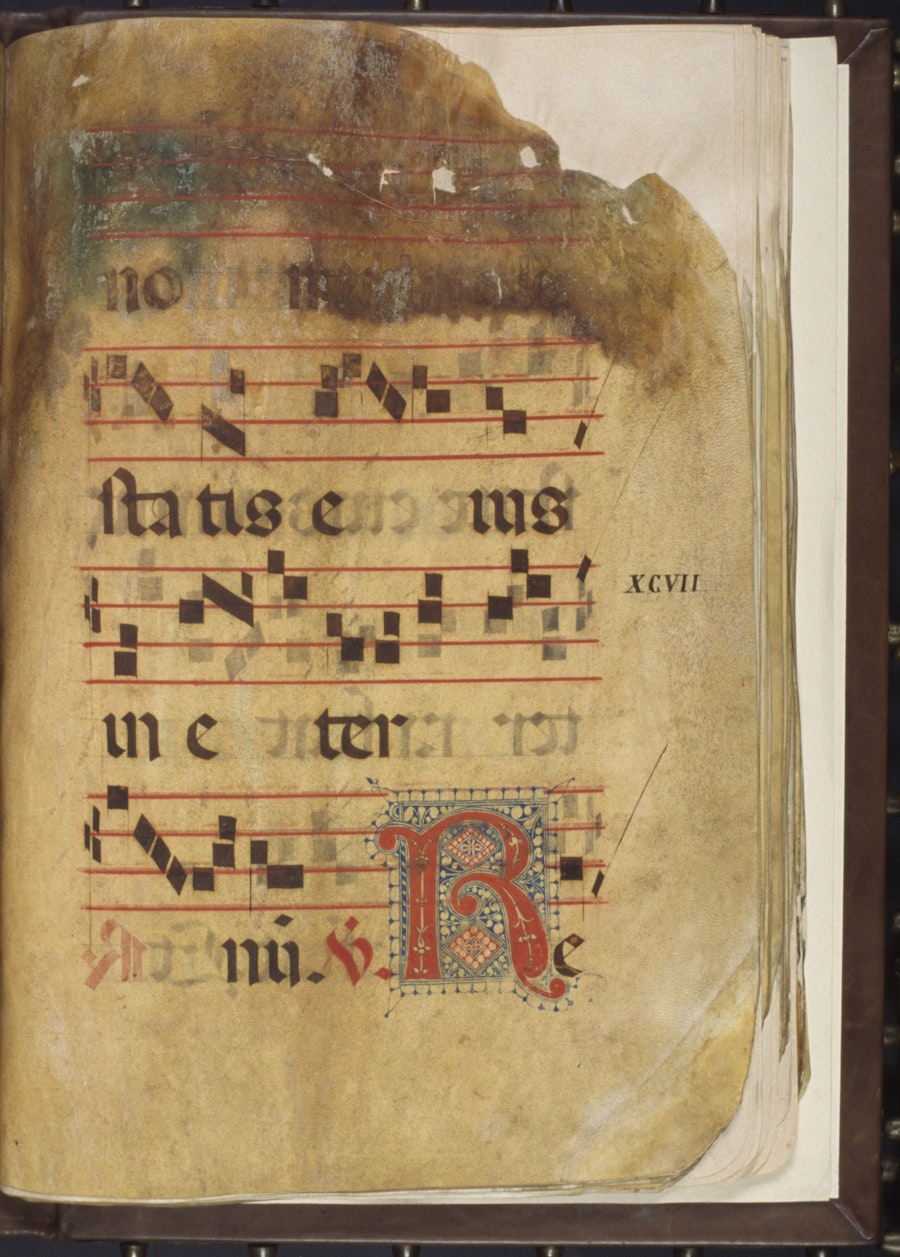 no
statis e ius
XCVII
in e ter
nū. V. Re